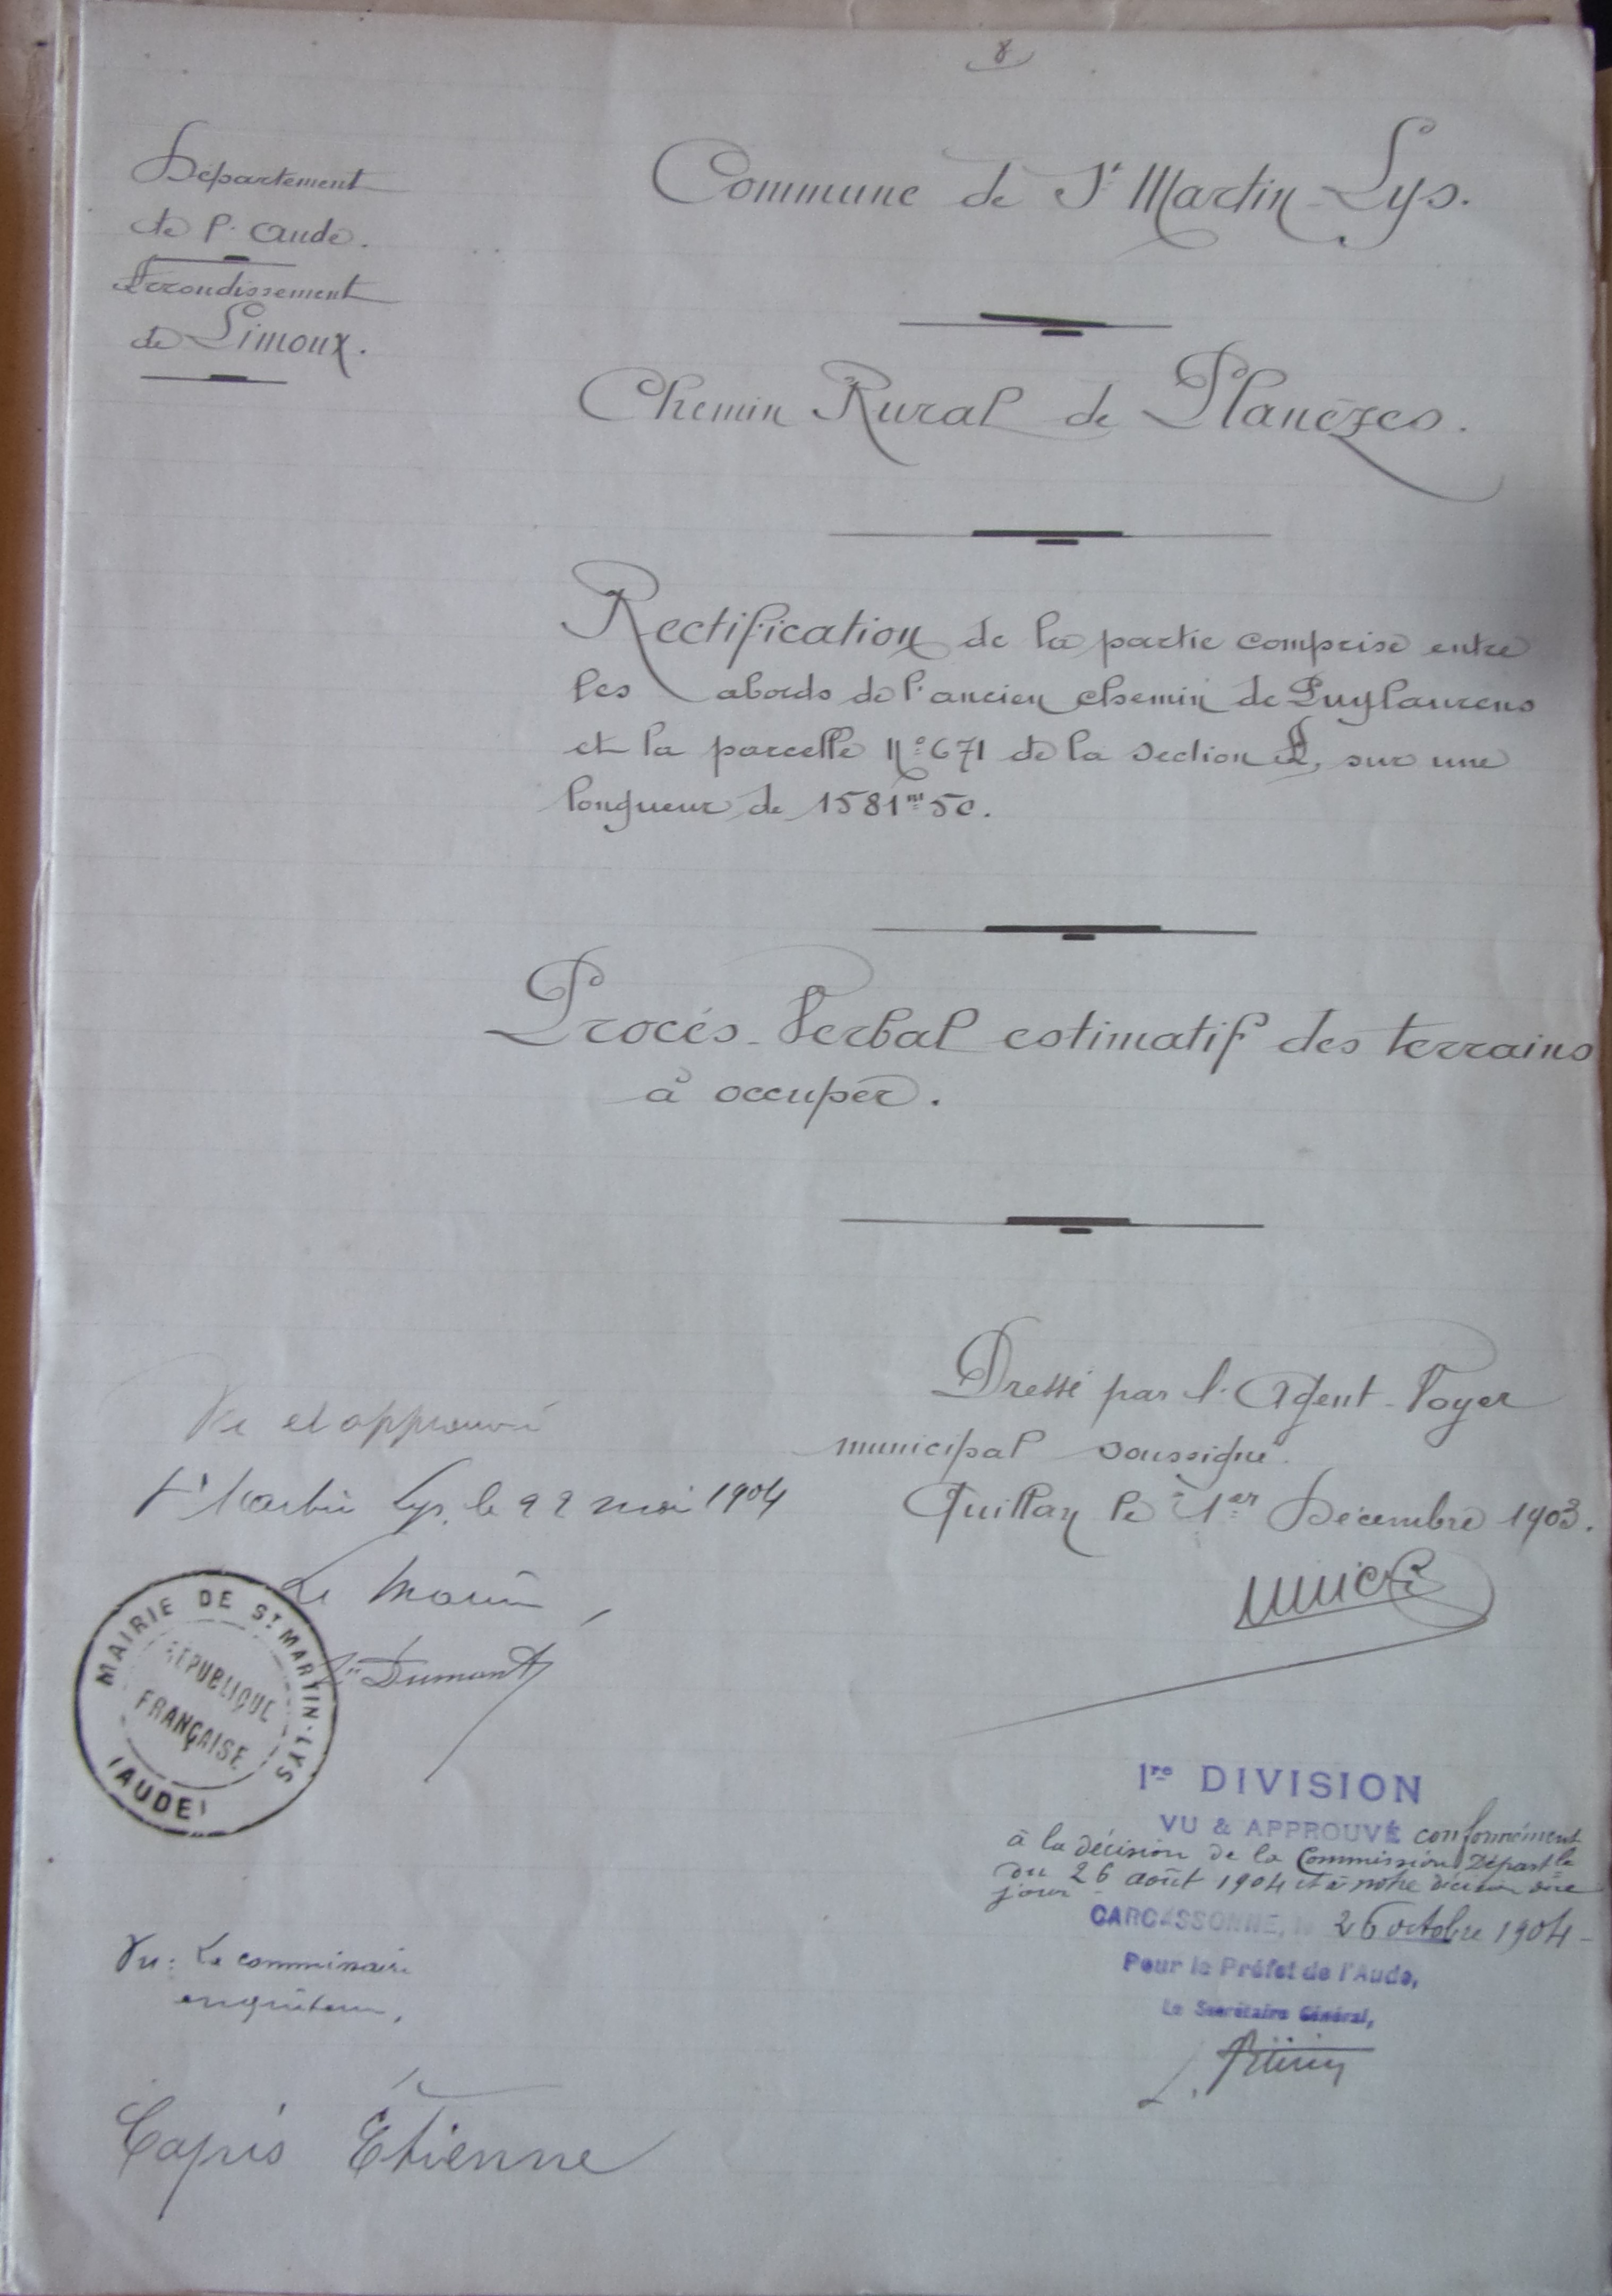 8
Département
de l'Aude.
Arrondissement
de Limoux.
Commune de St Martin-Lys.
Chemin Rural de Planèzes.
Rectification de la partie comprise entre
les abords de l'ancien chemin de Puylaurens
et la parcelle No 671 de la section A, sur une
longueur de 1581m50.
Procès-Verbal estimatif des terrains
à occuper.
Dressé par l'Agent-Voyer
municipal soussigné.
Quillan le 1er Décembre 1903.
Vu et approuvé
St Martin Lys, le 22 mai 1904
Le Maire,
Dumont
MAIRIE DE ST MARTIN-LYS
RÉPUBLIQUE
FRANÇAISE
(AUDE)
1re DIVISION
VU & APPROUVÉ conformément
à la décision de la Commission Départle
du 26 août 1904 et à notre décision de ce
jour
CARCASSONNE, le 26 octobre 1904
Pour le Préfet de l'Aude,
Le Secrétaire Général,
Vu: Le commissaire
enquêteur,
Capis Etienne